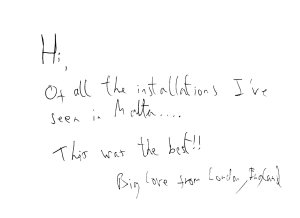 Hi,
Of all the installations I've
seen in Malta....
This was the best!!
Big love from London, England